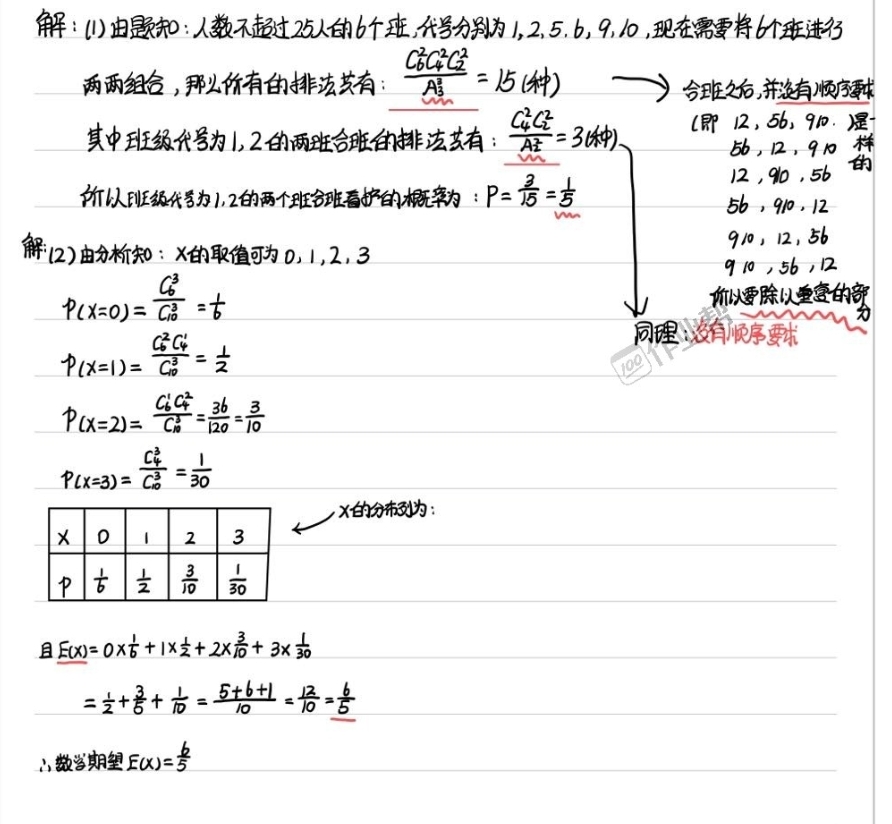 解：(1)由题知：人数不超过25人的6个班,代号分别为1,2,5,6,9,10,现在需要将6个班进行
两两组合，那么所有的排法共有：C₆²C₄²C₂²/A₃³ = 15(种)
其中班级代号为1,2的两班合班的排法共有：C₄²C₂²/A₂² = 3(种)
所以班级代号为1,2的两个班合班看护的概率为：P=3/15=1/5
合班之后,并没有顺序要求
(即 12,56,910. 是一样的
56,12,910
12,910,56
56,910,12
910,12,56
910,56,12
所以要除以重复的部分
同理:没有顺序要求
解:(2)由分析知：X的取值可为0,1,2,3
P(X=0)=C₆³/C₁₀³=1/6
P(X=1)=C₆²C₄¹/C₁₀³=1/2
P(X=2)=C₆¹C₄²/C₁₀³=36/120=3/10
P(X=3)=C₄³/C₁₀³=1/30
X的分布列为:
X 0 1 2 3
P 1/6 1/2 3/10 1/30
且E(X)=0×1/6+1×1/2+2×3/10+3×1/30
=1/2+3/5+1/10=5+6+1/10=12/10=6/5
∴数学期望E(X)=6/5
100 作业帮